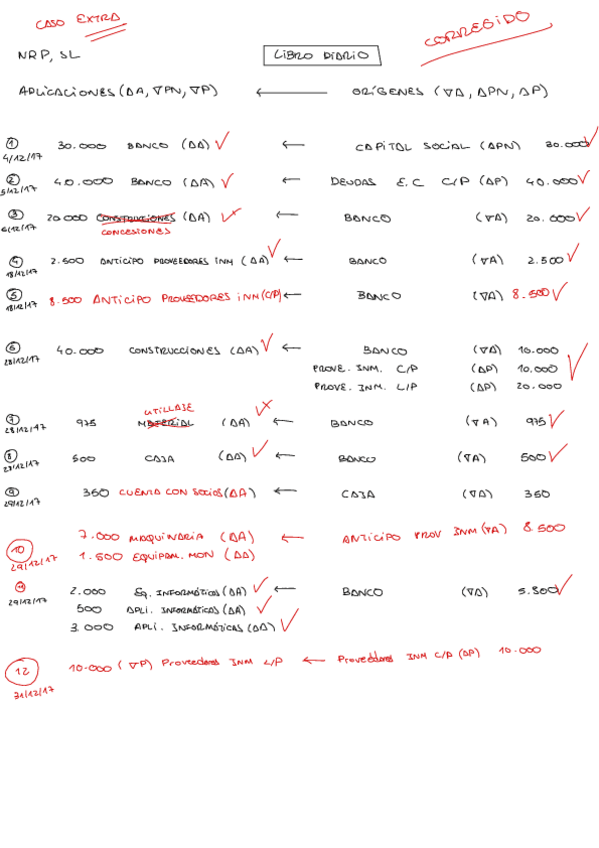 CASO EXTRA
CORREGIDO
NRP, SL LIBRO DIARIO
APLICACIONES (ΔA, ∇PN, ∇P) ← ORÍGENES (∇A, ΔPN, ΔP)
1 30.000 BANCO (ΔA) ✓ ← CAPITAL SOCIAL (ΔPN) 30.000 ✓
4/12/17
2 40.000 BANCO (ΔA) ✓ ← DEUDAS E.C C/P (ΔP) 40.000 ✓
5/12/17
3 20.000 CONSTRUCCIONES (ΔA) ← BANCO (∇A) 20.000 ✓
6/12/17 CONCESIONES
4 2.500 ANTICIPO PROVEEDORES INM (ΔA) ✓ ← BANCO (∇A) 2.500 ✓
18/12/17
5 8.500 ANTICIPO PROVEEDORES INM (C/P) ← BANCO (∇A) 8.500 ✓
18/12/17
6 40.000 CONSTRUCCIONES (ΔA) ✓ ← BANCO (∇A) 10.000
28/12/17 PROVE. INM. C/P (ΔP) 10.000 ✓
PROVE. INM. L/P (ΔP) 20.000
UTILLAJE
7 975 MATERIAL (ΔA) ← BANCO (∇A) 975 ✓
28/12/17
8 500 CAJA (ΔA) ✓ ← BANCO (∇A) 500 ✓
9 350 CUENTA CON SOCIOS (ΔA) ← CAJA (∇A) 350
29/12/17
10 7.000 MAQUINARIA (ΔA) ← ANTICIPO PROV INM (∇A) 8.500
29/12/17 1.500 EQUIPAM. MON (ΔA)
11 2.000 EQ. INFORMÁTICOS (ΔA) ✓ ← BANCO (∇A) 5.500 ✓
29/12/17 500 APLI. INFORMÁTICAS (ΔA) ✓
3.000 APLI. INFORMÁTICAS (ΔA) ✓
12 10.000 (∇P) Proveedores INM L/P ← Proveedores INM C/P (ΔP) 10.000
31/12/17